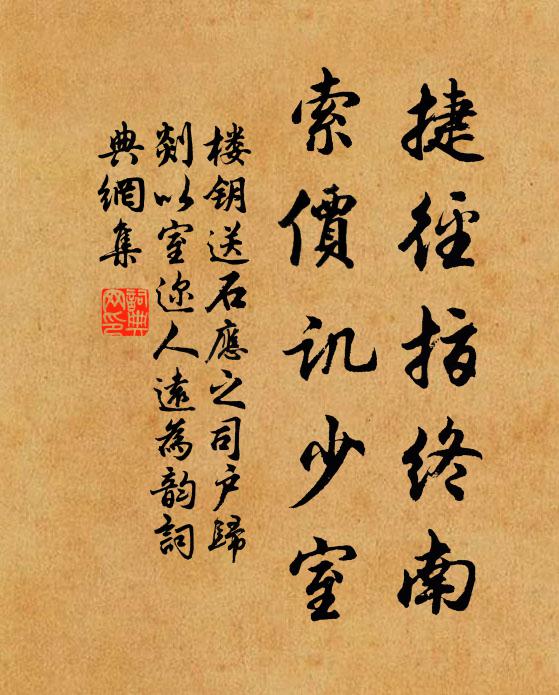 捷徑指終南
索價讥少室
楼钥送石應之司户歸
剡以室迩人遠為韵詞
典網集
詞典网印